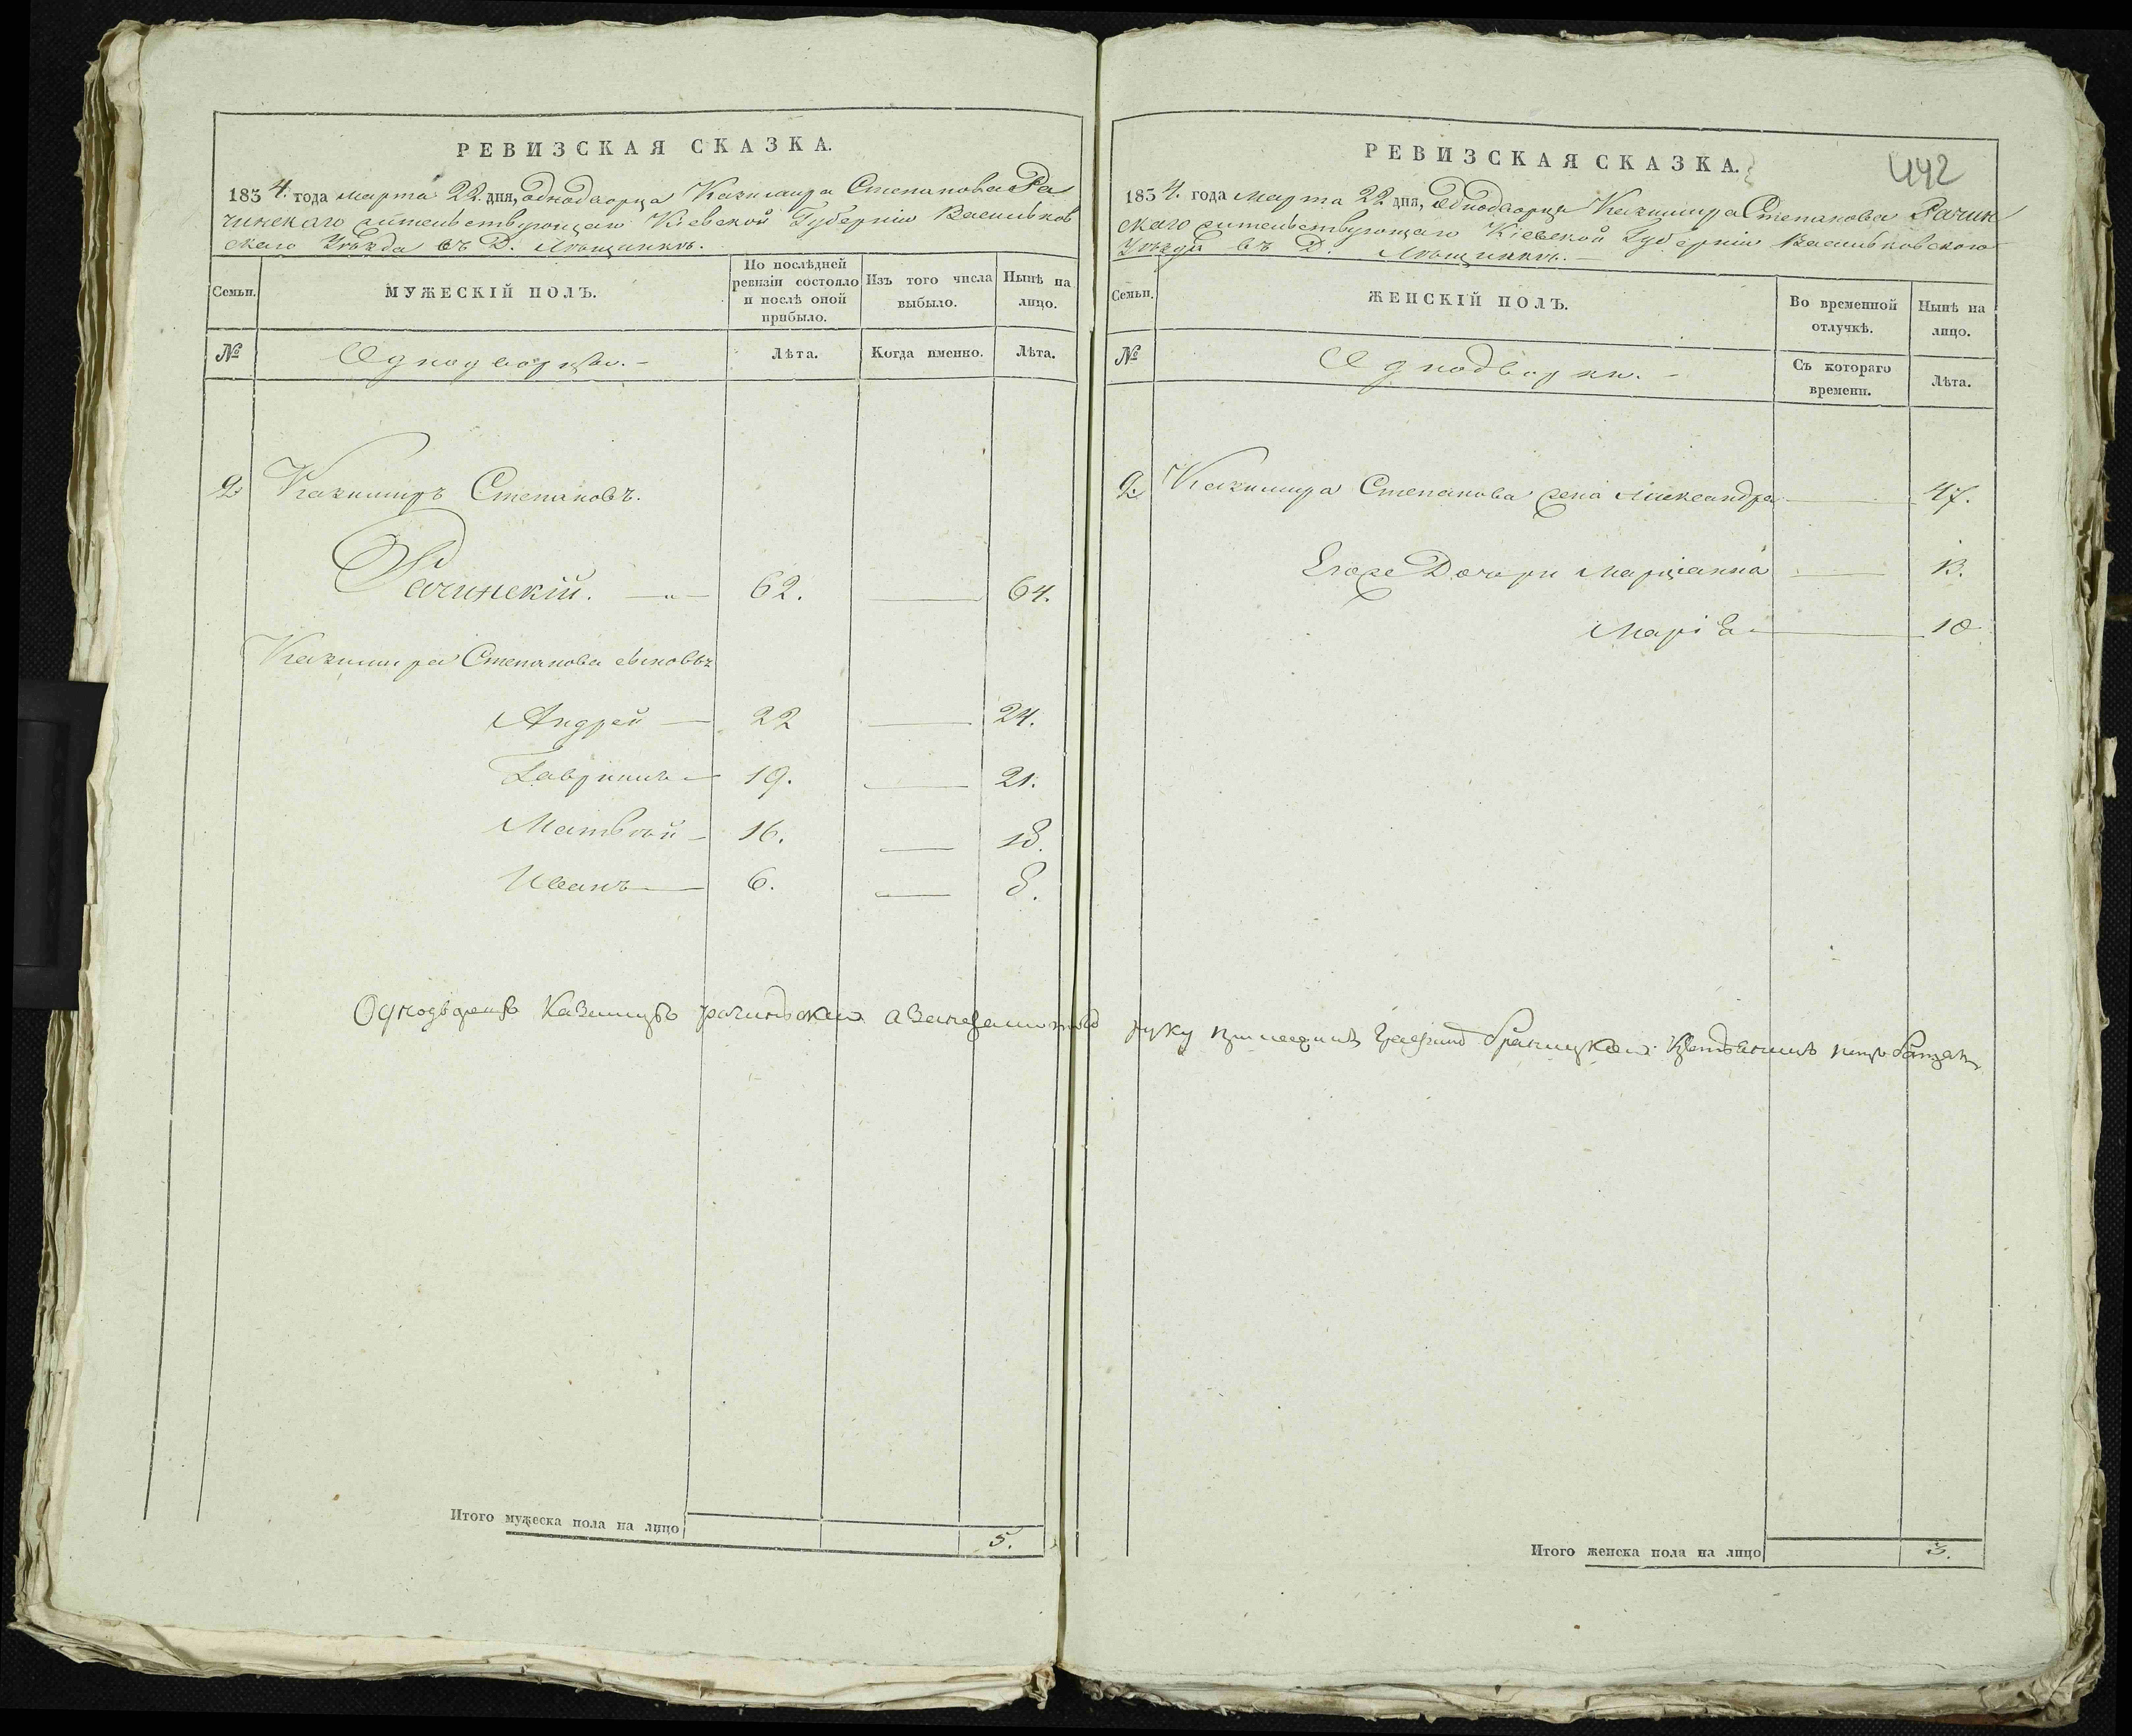 РЕВИЗСКАЯ СКАЗКА.
1834. года марта 22. дня, однодворца Казимира Степанова Ра
чинскаго жительствующаго Кіевской Губерніи Васильков
скаго Уѣзда въ Д.
Семьи.
МУЖЕСКІЙ ПОЛЪ.
По послѣдней ревизіи состояло и послѣ оной прибыло.
Изъ того числа выбыло.
Нынѣ на лицо.
№
Однодворцы.
Лѣта.
Когда именно.
Лѣта.
2 Казимиръ Степановъ.
Рачинскій. 62. 64.
Казимира Степанова сыновья
Андрей 22 24.
Гаврилъ 19. 21.
Матвѣй 16. 18.
Иванъ 6. 8.
Итого мужеска пола на лицо 5.
РЕВИЗСКАЯ СКАЗКА.
442
1834. года марта 22 дня, Однодворца Казимира Степанова Рачин
скаго жительствующаго Кіевской Губерніи Васильковского
Уѣзда въ Д.
Семьи.
ЖЕНСКІЙ ПОЛЪ.
Во временной отлучкѣ.
Нынѣ на лицо.
№
Однодворки.
Съ котораго времени.
Лѣта.
2 Казимира Степанова жена Александра 47.
Егоже Дочери Марціанна 13.
Марія 10
Однодворецъ Казимиръ рачинскій руку
Итого женска пола на лицо 3.